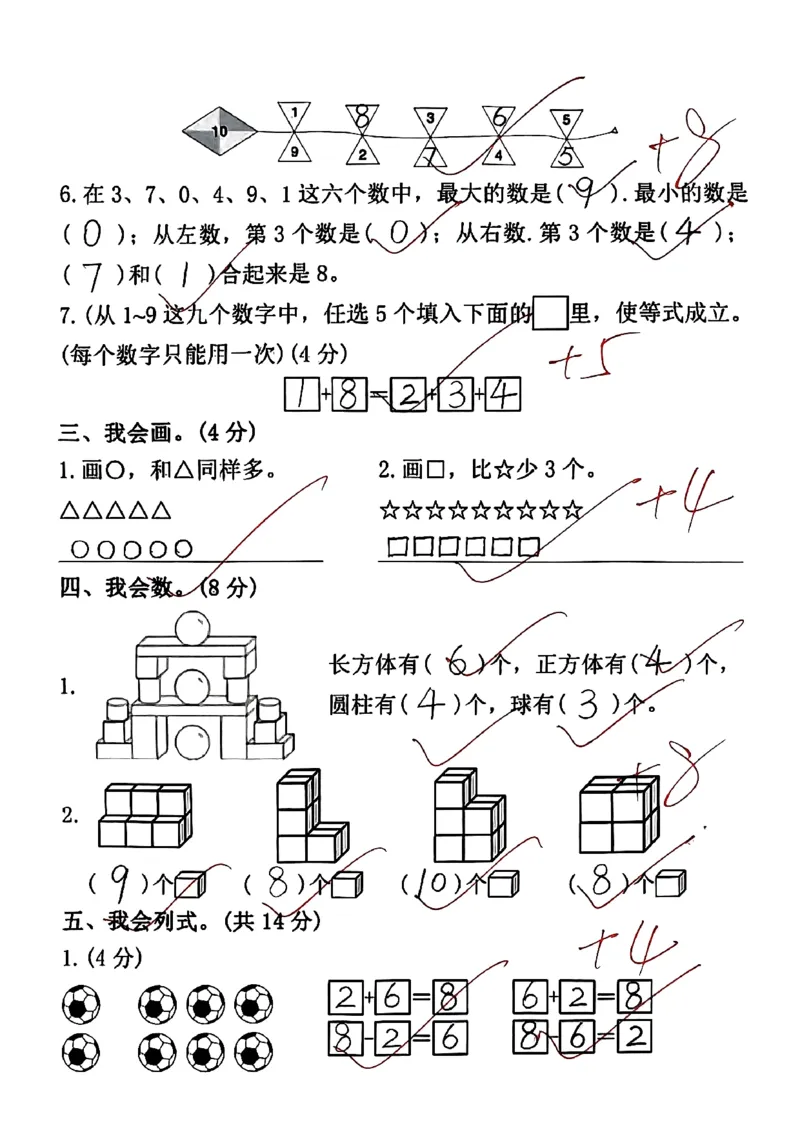 1 8 3 6 5
10
9 2 7 4 5
+8
6.在 3、7、0、4、9、1 这六个数中，最大的数是( 9 ).最小的数是
( 0 )；从左数，第 3 个数是( 0 )；从右数.第 3 个数是( 4 )；
( 7 )和( 1 )合起来是 8。
7.(从 1~9 这九个数字中，任选 5 个填入下面的□里，使等式成立。
(每个数字只能用一次)(4 分)
+5
1+8=2+3+4
三、我会画。(4 分)
1.画○，和△同样多。 2.画□，比☆少 3 个。
+4
△△△△△ ☆☆☆☆☆☆☆☆☆
○○○○○ □□□□□□
四、我会数。(8 分)
长方体有( 6 )个，正方体有( 4 )个，
1.
圆柱有( 4 )个，球有( 3 )个。
+8
2.
( 9 )个 ( 8 )个 ( 10 )个 ( 8 )个
五、我会列式。(共 14 分)
+4
1.(4 分)
2+6=8 6+2=8
8-2=6 8-6=2